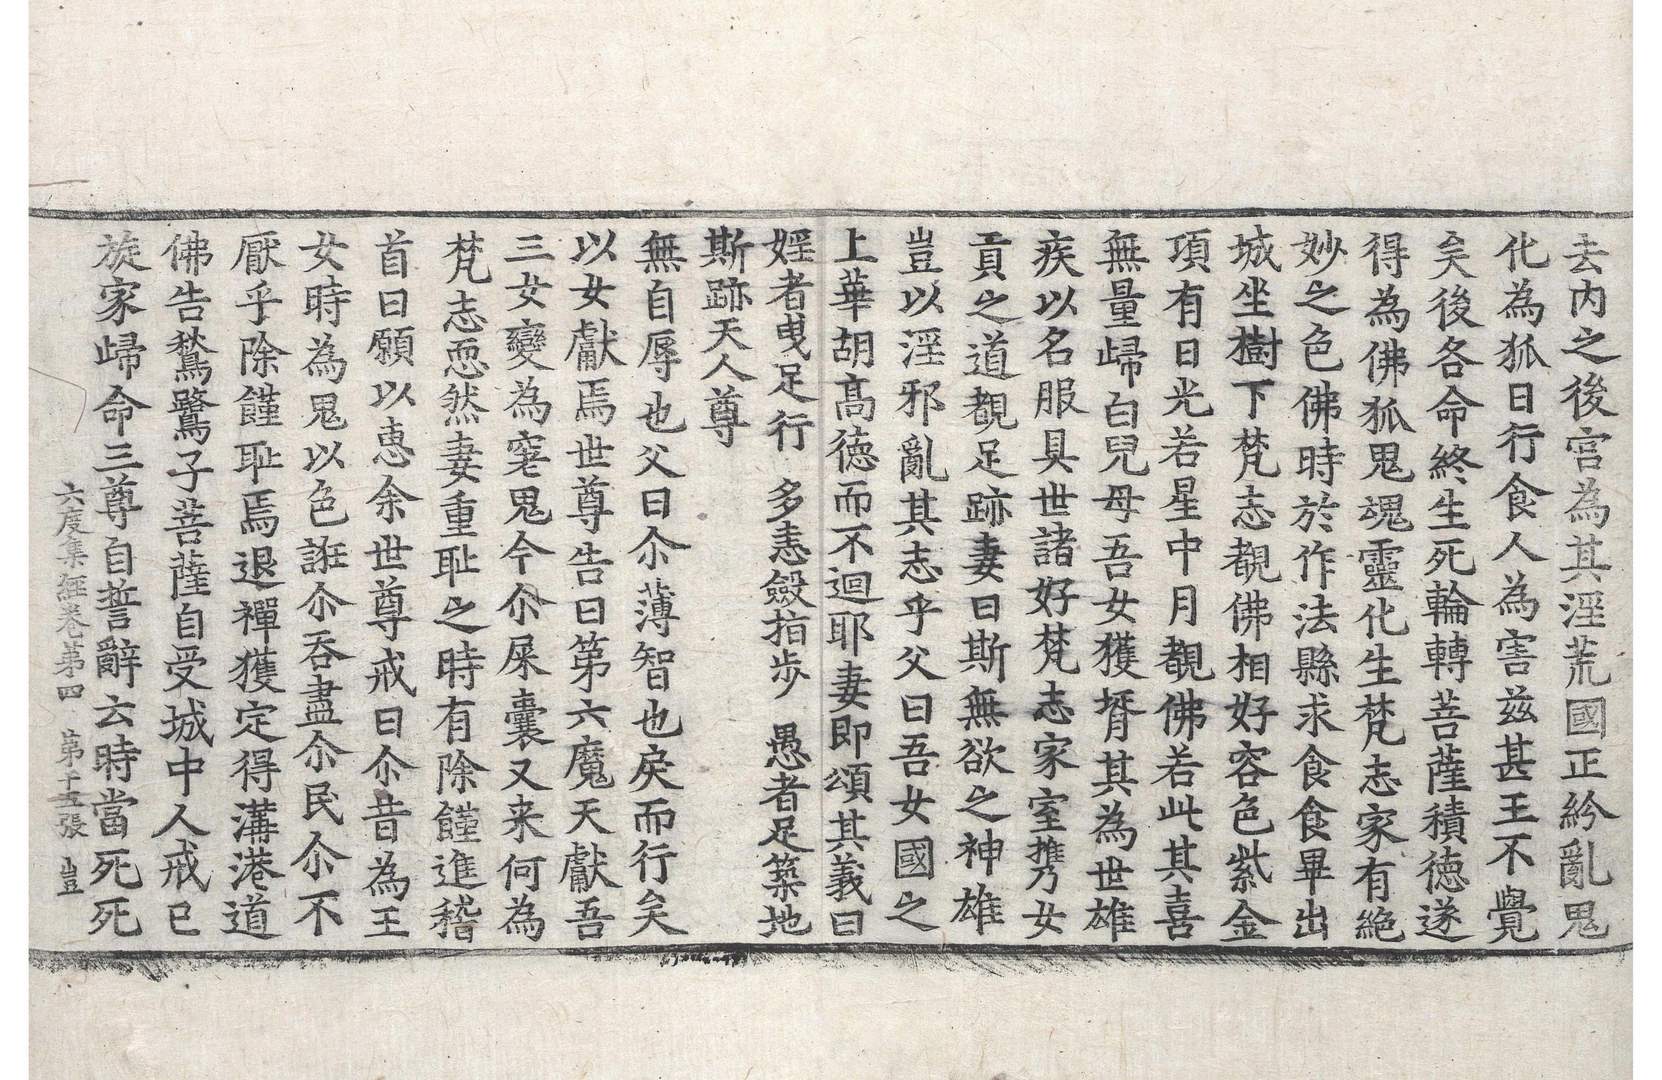 去內之後宮為其淫荒國正紾亂鬼
化為狐日行食人為害茲甚王不覺
矣後各命終生死輪轉菩薩積德遂
得為佛狐鬼魂靈化生梵志家有絶
妙之色佛時於作法縣求食食畢出
城坐樹下梵志覩佛相好容色紫金
項有日光若星中月覩佛若此其喜
無量歸白兒母吾女獲壻其為世雄
疾以名服具世諸好梵志家室携乃女
貢之道覩足跡妻曰斯無欲之神雄
豈以淫邪亂其志乎父曰吾女國之
上華胡高德而不迴耶妻即頌其義曰
婬者曳足行　多恚斂指步　愚者足築地
斯跡天人尊
無自辱也父曰尒薄智也戾而行矣
以女獻焉世尊告曰第六魔天獻吾
三女變為老鬼今尒屎囊又来何為
梵志恧然妻重耻之時有除饉進稽
首曰願以惠余世尊戒曰尒昔為王
女時為鬼以色誑尒吞盡尒民尒不
厭乎除饉耻焉退禪獲定得溝港道
佛告鶖鷺子菩薩自受城中人戒已
旋家歸命三尊自誓辭云時當死死
六度集經卷第四　第十五張　豈